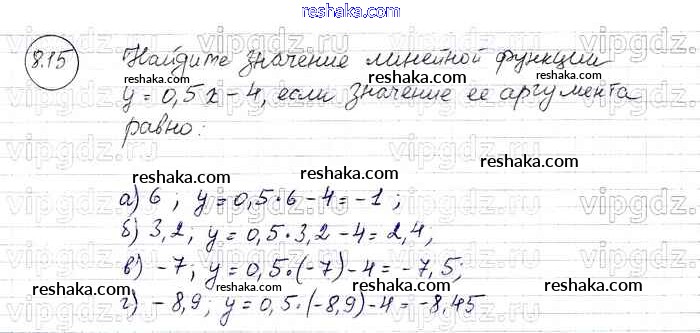 reshaka.com
8.15 Найдите значение линейной функции
reshaka.com reshaka.com reshaka.com
y = 0,5x - 4, если значение ее аргумента
равно:
reshaka.com
reshaka.com reshaka.com
а) 6 ; y = 0,5·6 - 4 = -1 ;
б) 3,2, y = 0,5·3,2 - 4 = 2,4,
reshaka.com reshaka.com reshaka.com
в) -7; y = 0,5·(-7) - 4 = -7,5;
reshaka.com reshaka.com
г) -8,9; y = 0,5·(-8,9) - 4 = -8,45
reshaka.com
vipgdz.ru vipgdz.ru vipgdz.ru